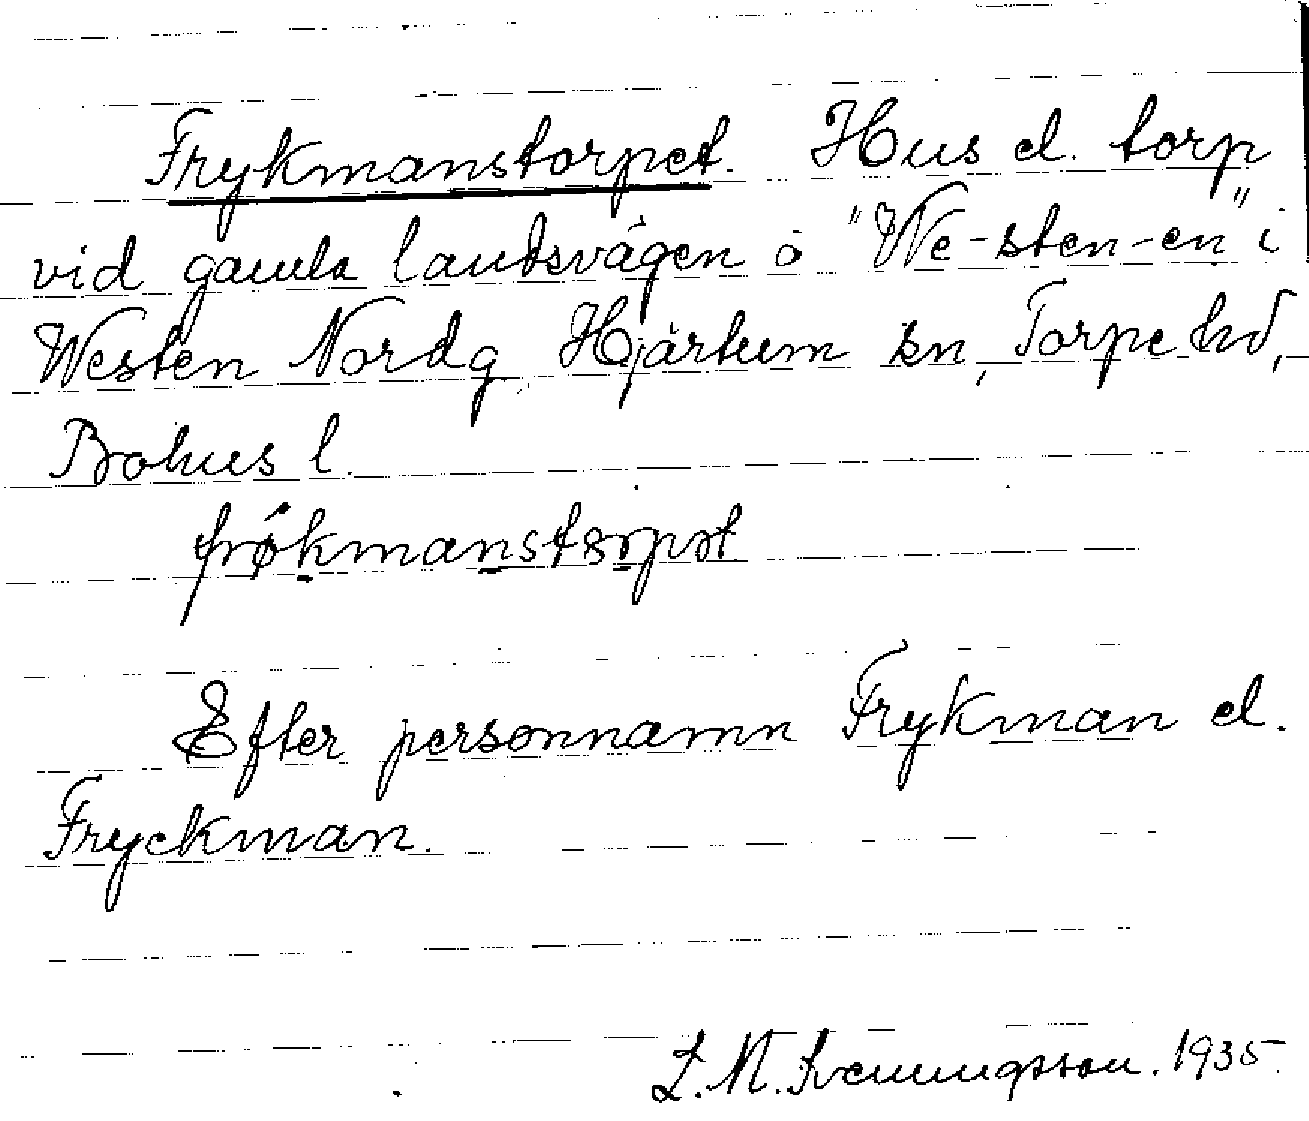 Frykmanstorpet. Hus el. torp
vid gamla landsvägen å "We-sten-en" i
Westen Nordg, Hjärtum sn, Torpe hd,
Bohus l.
frökmanstorpet
Efter personnamn Frykman el.
Fryckman.
L. N. Svenningsson. 1935.